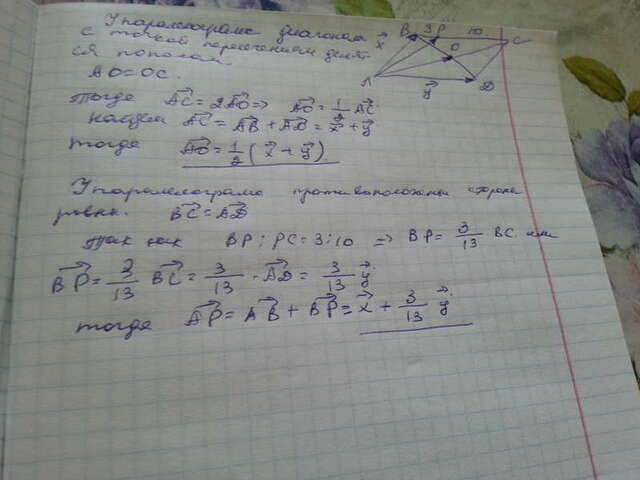 У паралелограма диагонали
с точкой пересечения делят-
ся пополам.
AO = OC.
Тогда AC⃗ = 2AO⃗ => AO⃗ = 1/2 AC⃗
найдем AC⃗ = AB⃗ + AD⃗ = x⃗ + y⃗
тогда AO⃗ = 1/2 (x⃗ + y⃗).
У паралелограма противоположны стороны
равны. BC⃗ = AD⃗
так как BP : PC = 3 : 10 => BP = 3/13 BC. или
BP⃗ = 3/13 BC⃗ = 3/13 · AD⃗ = 3/13 y⃗.
тогда AP⃗ = AB⃗ + BP⃗ = x⃗ + 3/13 y⃗.
B 3 P 10 C
x⃗
O
A
y⃗
D